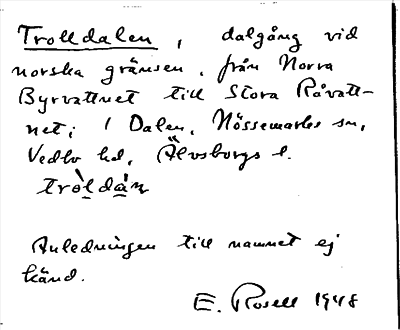 Trolldalen, dalgång vid
norska gränsen, från Norra
Byrvattnet till Stora Råvatt-
net, i Dalen, Nössemarks sn,
Vedbo hd, Älvsborgs l.
tròldàn
Anledningen till namnet ej
känd.
E. Rosell 1948